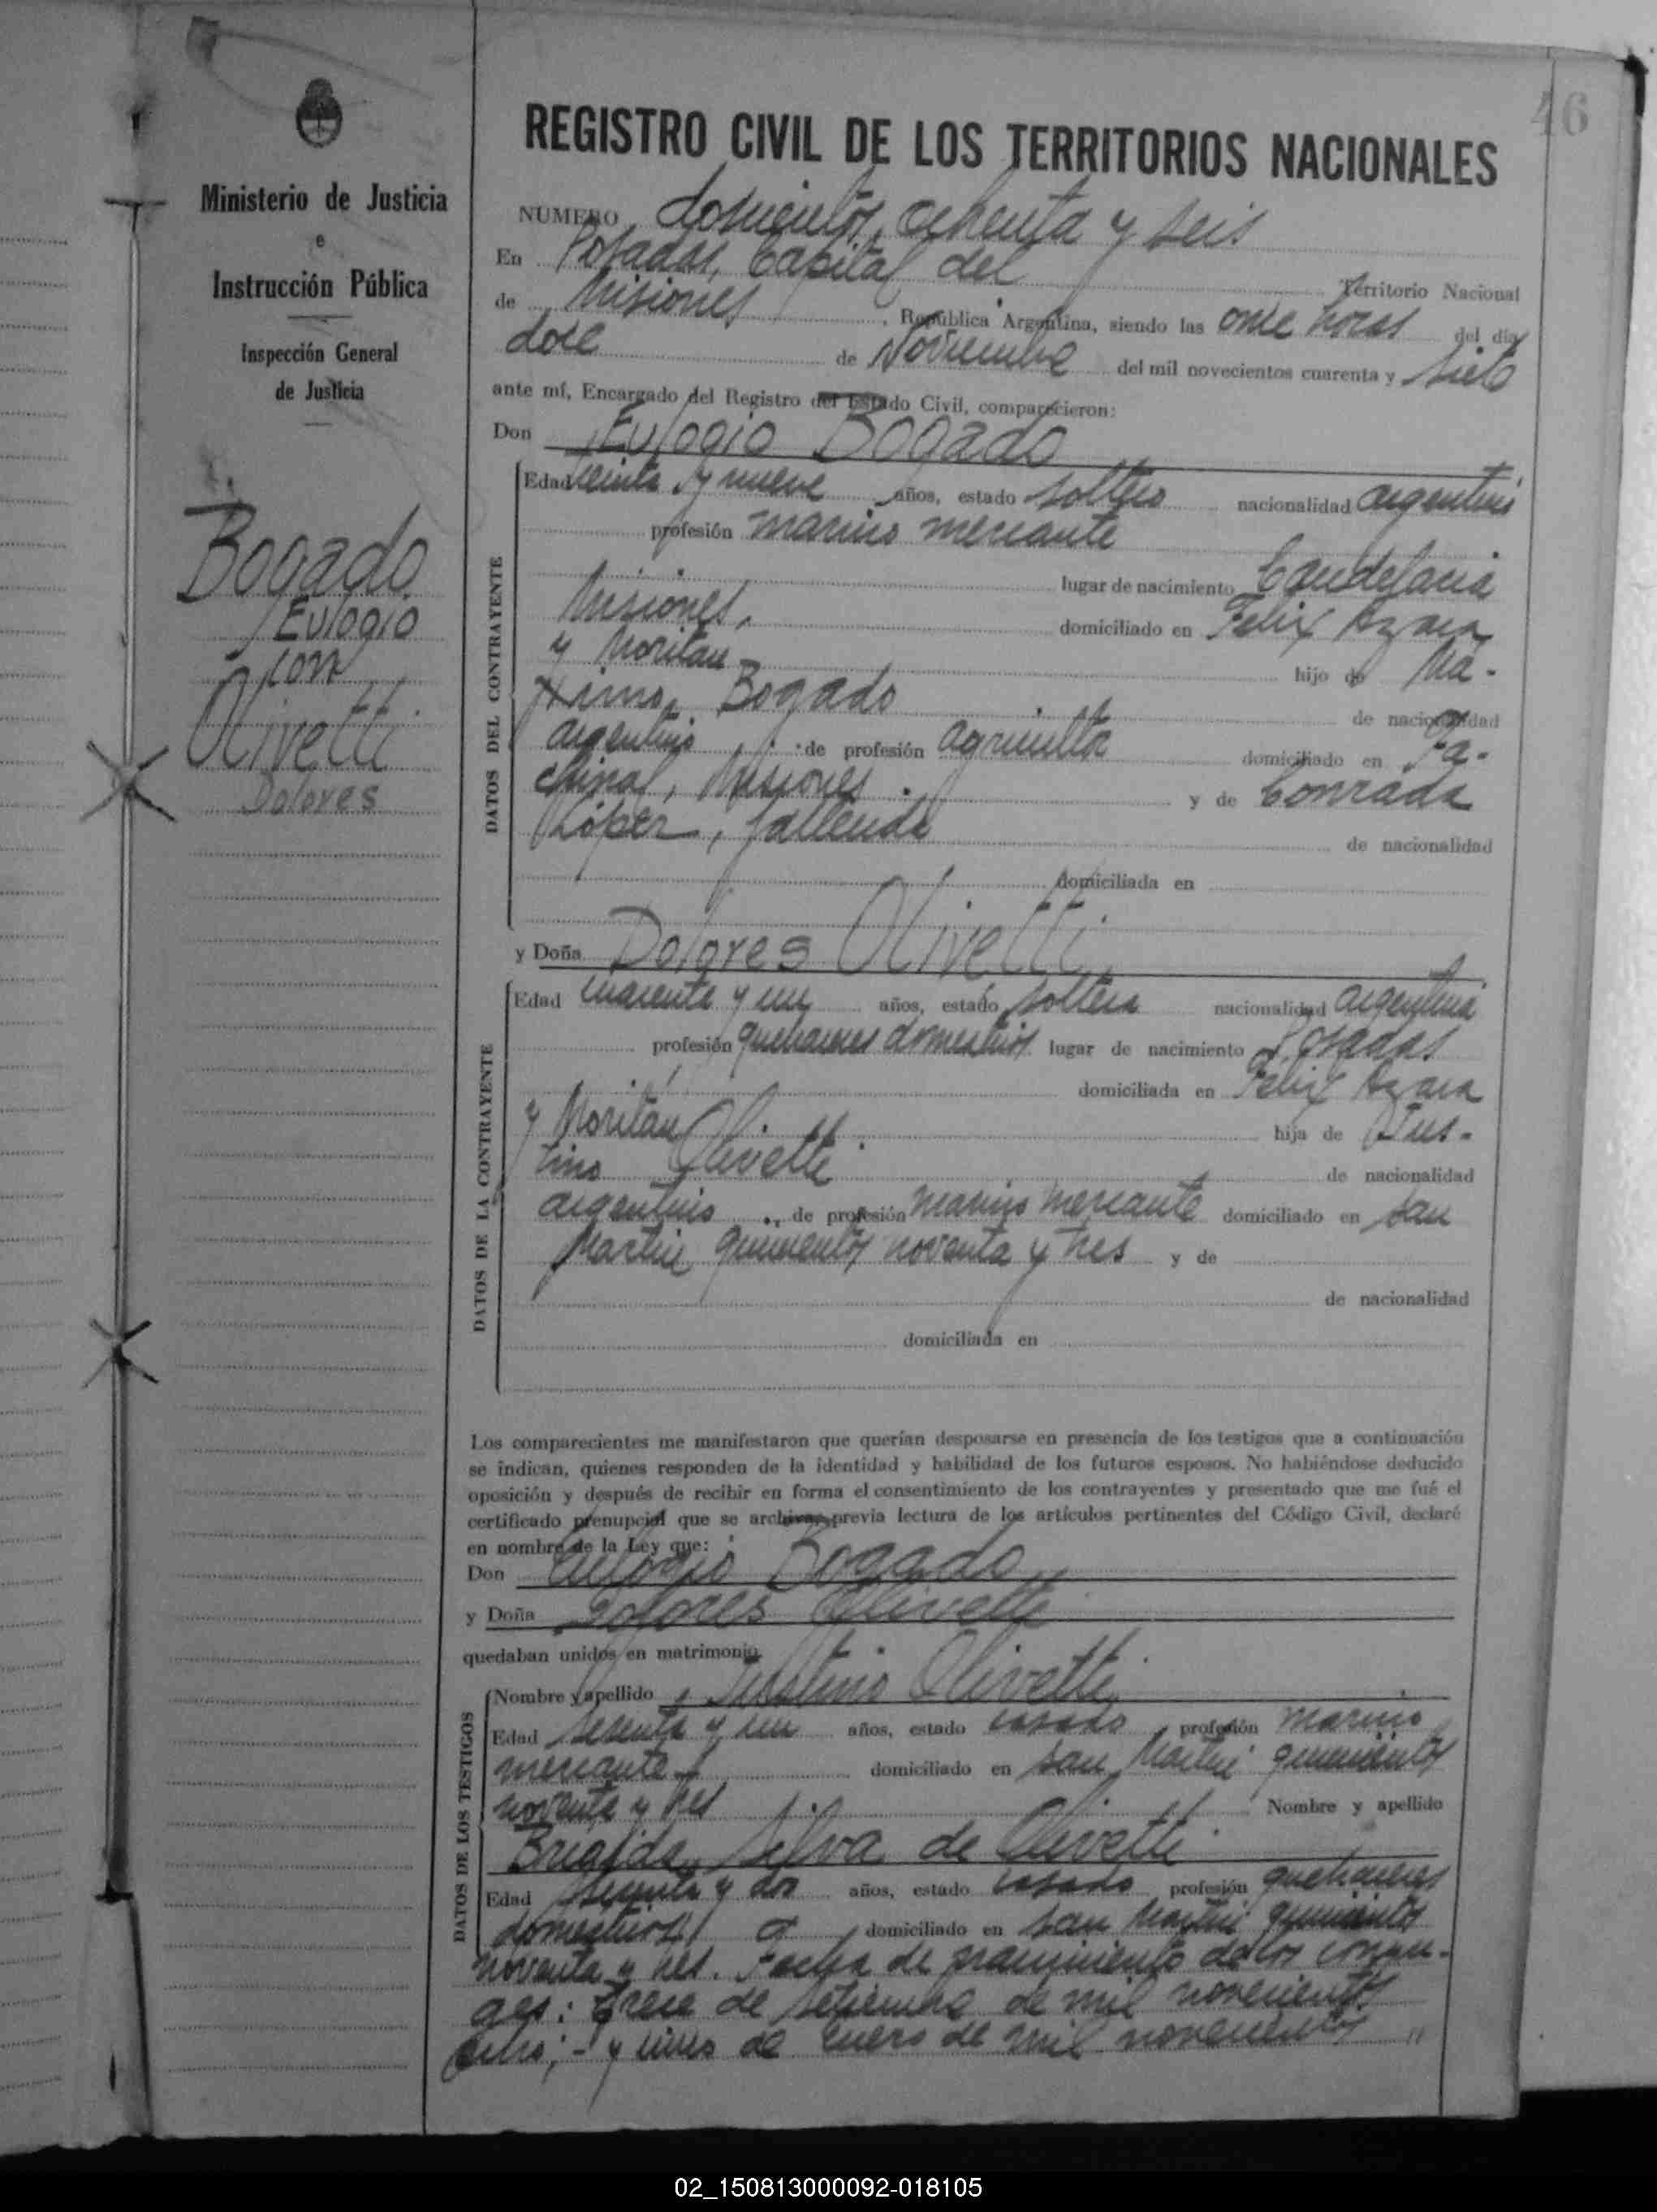 46
Ministerio de Justicia
e
Instrucción Pública
Inspección General
de Justicia
Bogado
Eulogio
con
Olivetti
Dolores
REGISTRO CIVIL DE LOS TERRITORIOS NACIONALES
NUMERO doscientos ochenta y seis
En Posadas, Capital del Territorio Nacional
de Misiones, República Argentina, siendo las once horas del día
doce de Noviembre del mil novecientos cuarenta y siete
ante mí, Encargado del Registro del Estado Civil, comparecieron:
Don Eulogio Bogado
DATOS DEL CONTRAYENTE
Edad treinta y nueve años, estado soltero nacionalidad argentino
profesión marino mercante
lugar de nacimiento Candelaria
Misiones, domiciliado en Felix Azara
y Moritan hijo de Má-
ximo Bogado de nacionalidad
argentino de profesión agricultor domiciliado en Pa-
chinal, Misiones. y de Conrada
López, fallecida de nacionalidad
domiciliada en
y Doña Dolores Olivetti
DATOS DE LA CONTRAYENTE
Edad cuarenta y un años, estado soltera nacionalidad argentina
profesión quehaceres domesticos lugar de nacimiento Posadas
domiciliada en Felix Azara
y Moritán hija de Jus-
tino Olivetti de nacionalidad
argentino de profesión marino mercante domiciliado en San
Martin quinientos noventa y tres y de
de nacionalidad
domiciliada en
Los comparecientes me manifestaron que querían desposarse en presencia de los testigos que a continuación
se indican, quienes responden de la identidad y habilidad de los futuros esposos. No habiéndose deducido
oposición y después de recibir en forma el consentimiento de los contrayentes y presentado que me fué el
certificado prenupcial que se archiva, previa lectura de los artículos pertinentes del Código Civil, declaré
en nombre de la Ley que:
Don Eulogio Bogado
y Doña Dolores Olivetti
quedaban unidos en matrimonio.
DATOS DE LOS TESTIGOS
Nombre y apellido Justino Olivetti
Edad sesenta y un años, estado casado profesión marino
mercante domiciliado en San Martin quinientos
noventa y tres Nombre y apellido
Brigida Silva de Olivetti
Edad y dos años, estado casado profesión quehaceres
domesticos domiciliado en San Martin quinientos
noventa y tres. Fecha de nacimiento de los conyu-
ges: trece de setiembre de mil novecientos
ocho; - y de Enero de mil novecientos
02_150813000092-018105